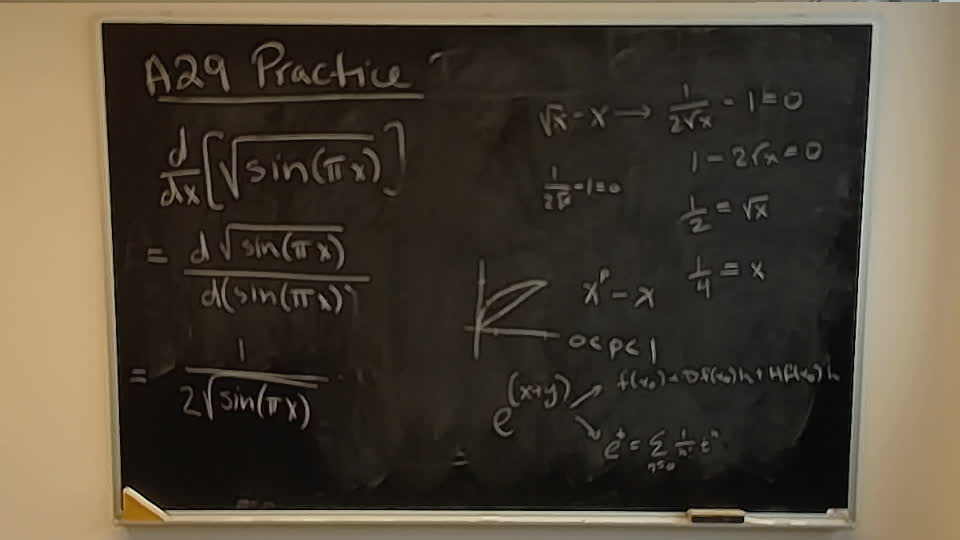 A29 Practice
d/dx [√sin(πx)]
= d√sin(πx) / d(sin(πx))
= 1 / 2√sin(πx)
√x - x → 1/2√x - 1 = 0
1 - 2√x = 0
1/2√x - 1 = 0
1/2 = √x
1/4 = x
x^p - x
0 < p < 1
e^(x+y)
f(x₀) + Df(x₀)h + Hf(x₀)h
e^t = Σ n≥0 1/n! t^n
=